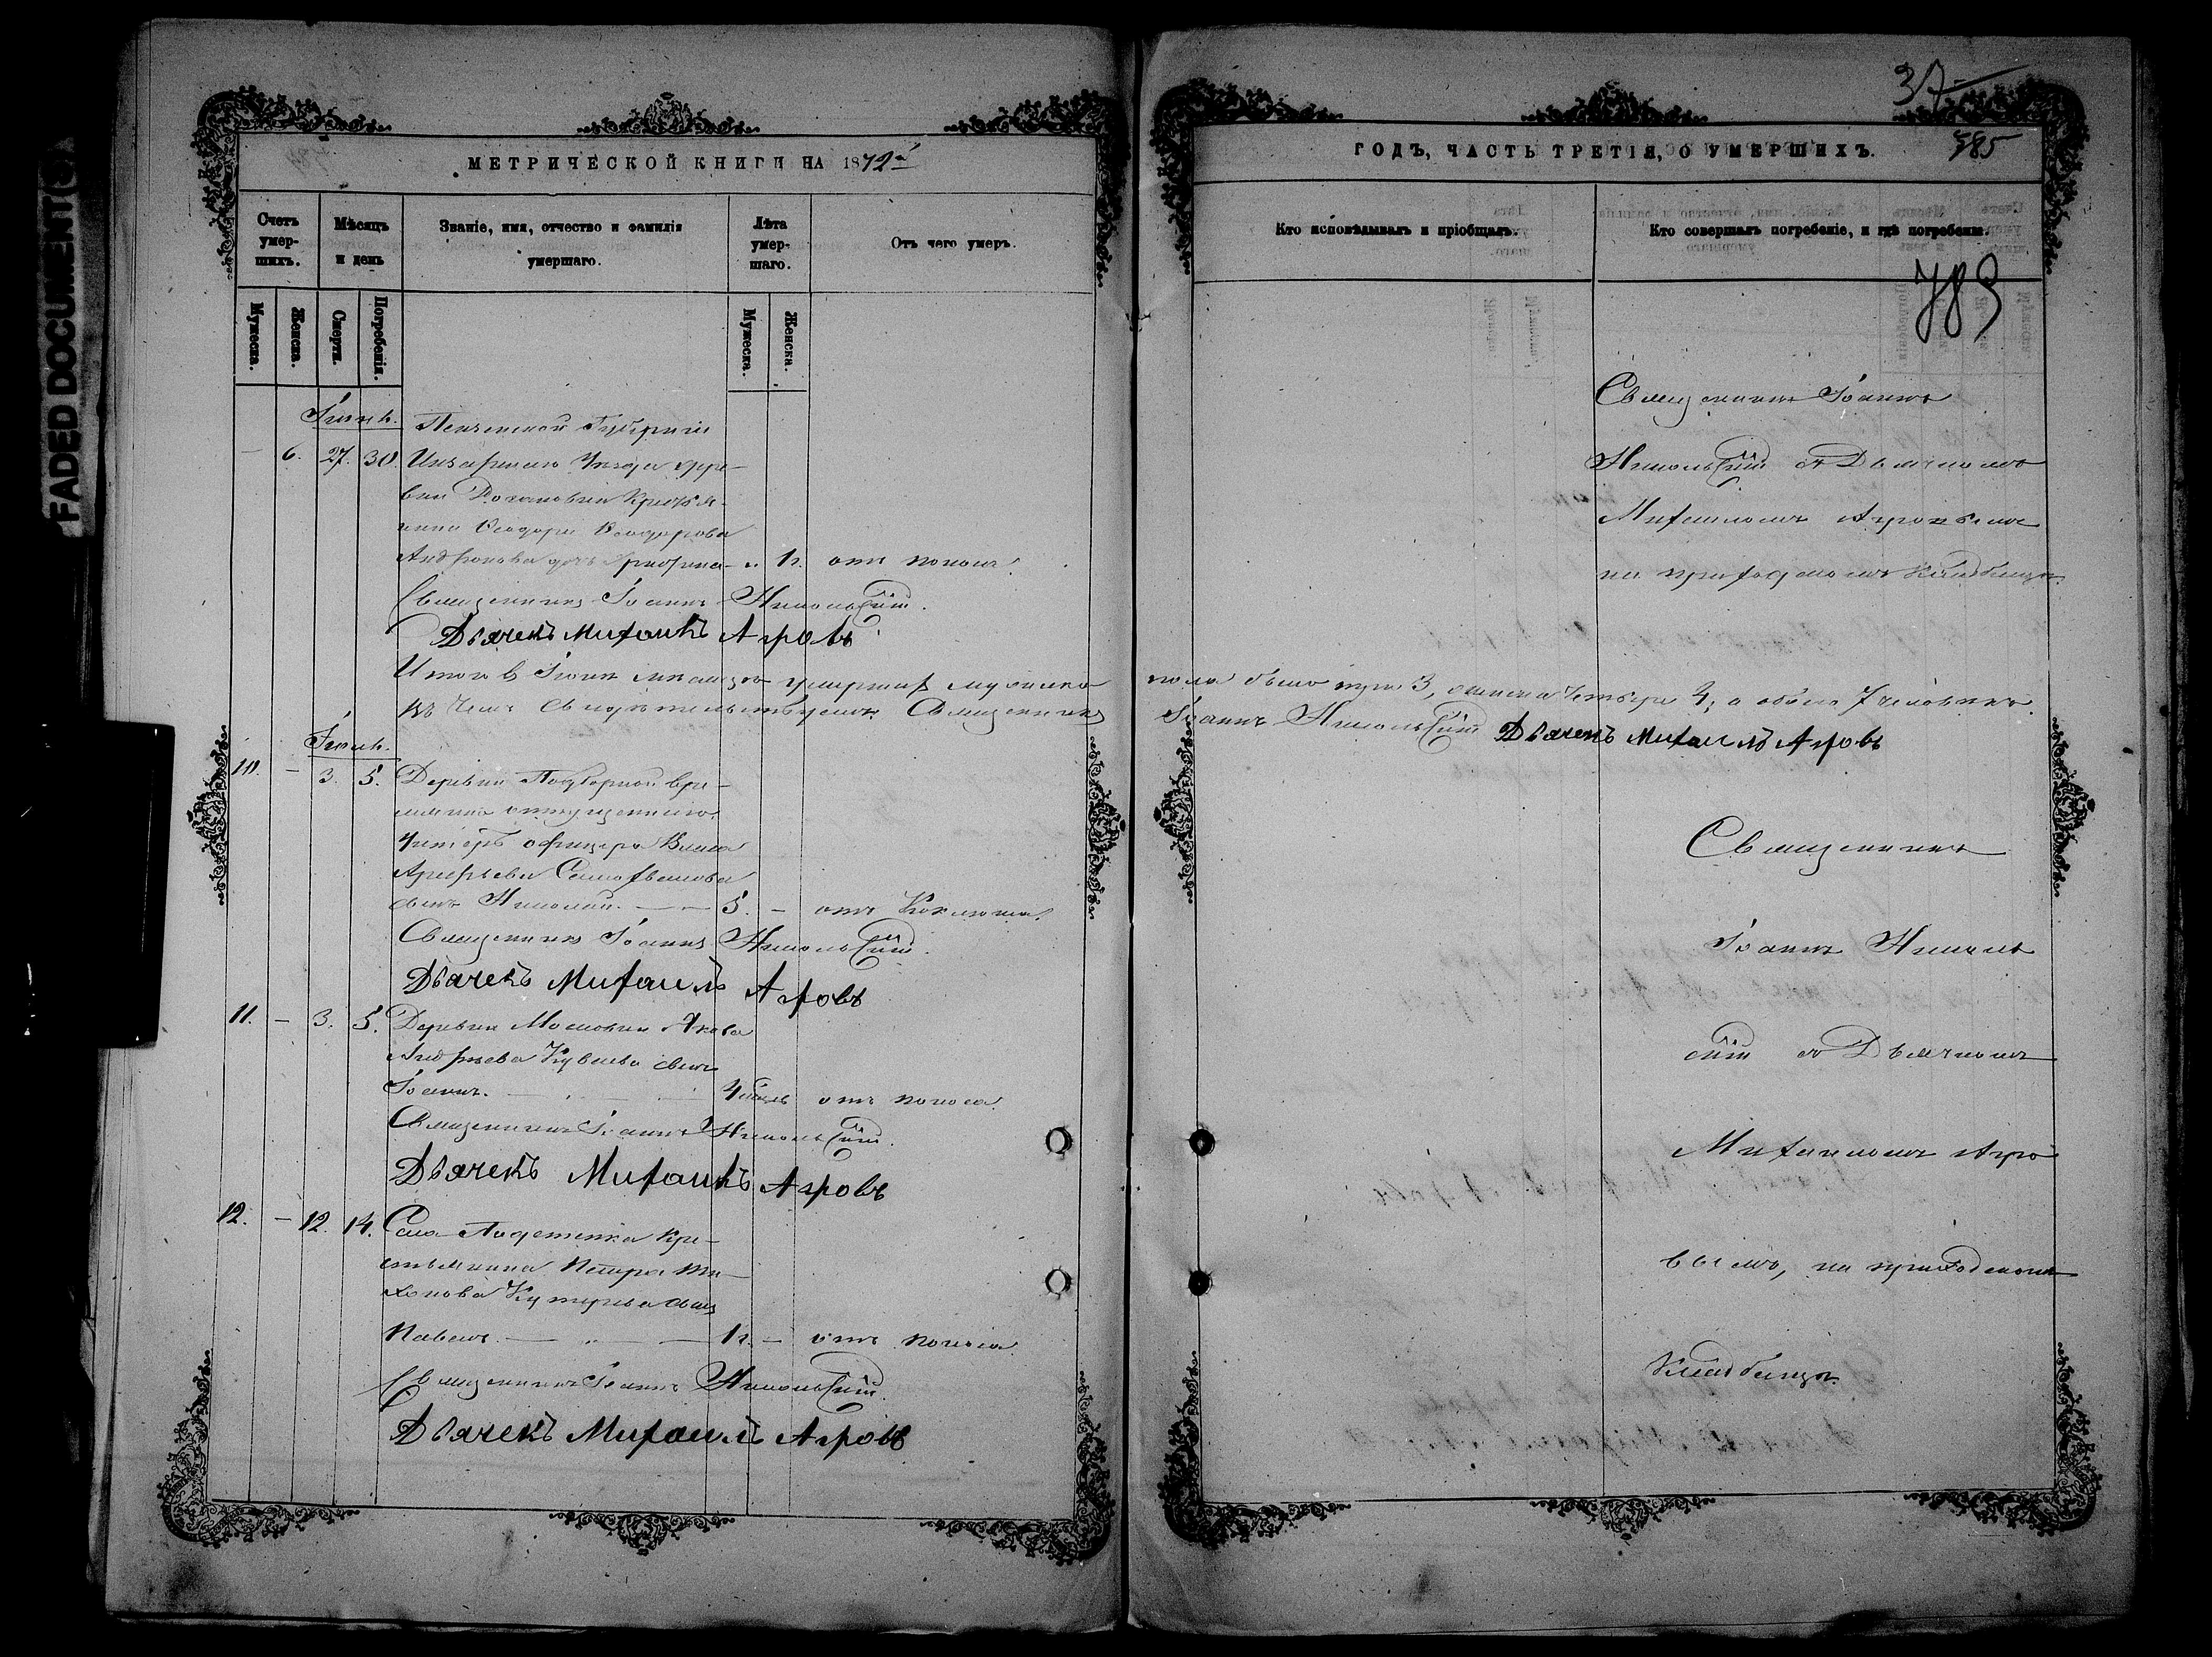 FADED DOCUMENT(S)
МЕТРИЧЕСКОЙ КНИГИ НА 1872й
Счетъ умер-шихъ.
Мѣсяцъ и день
Званіе, имя, отчество и фамилія умершаго.
Лѣта умер-шаго.
Отъ чего умеръ.
Мужеска.
Женска.
Смерти.
Погребенія.
Мужеска.
Женска.
Іюнь.
Пензенской Губерніи
— 6. 27. 30. Инсарскаго Уѣзда дере-
вни Крестья-
нина Ѳеодора Ѳеодорова
Андронова дочь — „ 1 г. отъ поноса.
Священникъ Іоаннъ Никольскій.
Дьячекъ Михаилъ Агровъ
Итого въ Іюнѣ мѣсяцѣ умершихъ мужеска
въ чемъ свидѣтельствуемъ Священникъ
Іюль.
10. — 3. 5. Деревни Подгорной вре-
менно отпущеннаго
Унтеръ офицера
сынъ Николай. — — 5. — отъ Коклюша.
Священникъ Іоаннъ Никольскій.
Дьячекъ Михаилъ Агровъ
11. — 3. 5. Деревни
Андреева сынъ
Іоаннъ. — 4 отъ поноса.
Священникъ Іоаннъ Никольскій.
Дьячекъ Михаилъ Агровъ
12. — 12. 14. Села Кре-
стьянина Петра Ти-
хонова сынъ
Павелъ. — „ — 1 г. — отъ поноса.
Священникъ Іоаннъ Никольскій.
Дьячекъ Михаилъ Агровъ
37
ГОДЪ, ЧАСТЬ ТРЕТІЯ, О УМЕРШИХЪ.
385
Кто исповѣдывалъ и пріобщалъ.
Кто совершалъ погребеніе, и гдѣ погребены.
Священникъ Іоаннъ
Никольскій съ Дьячкомъ
Михаиломъ Агровымъ
на приходскомъ кладбищѣ.
пола было три 3, женска четыре 4, а обоего 7 человѣкъ.
Іоаннъ Никольскій Дьячекъ Михаилъ Агровъ
Священникъ
Іоаннъ Николь
скій съ Дьячкомъ
Михаиломъ Агро
вымъ, на приходскомъ
Кладбищѣ.